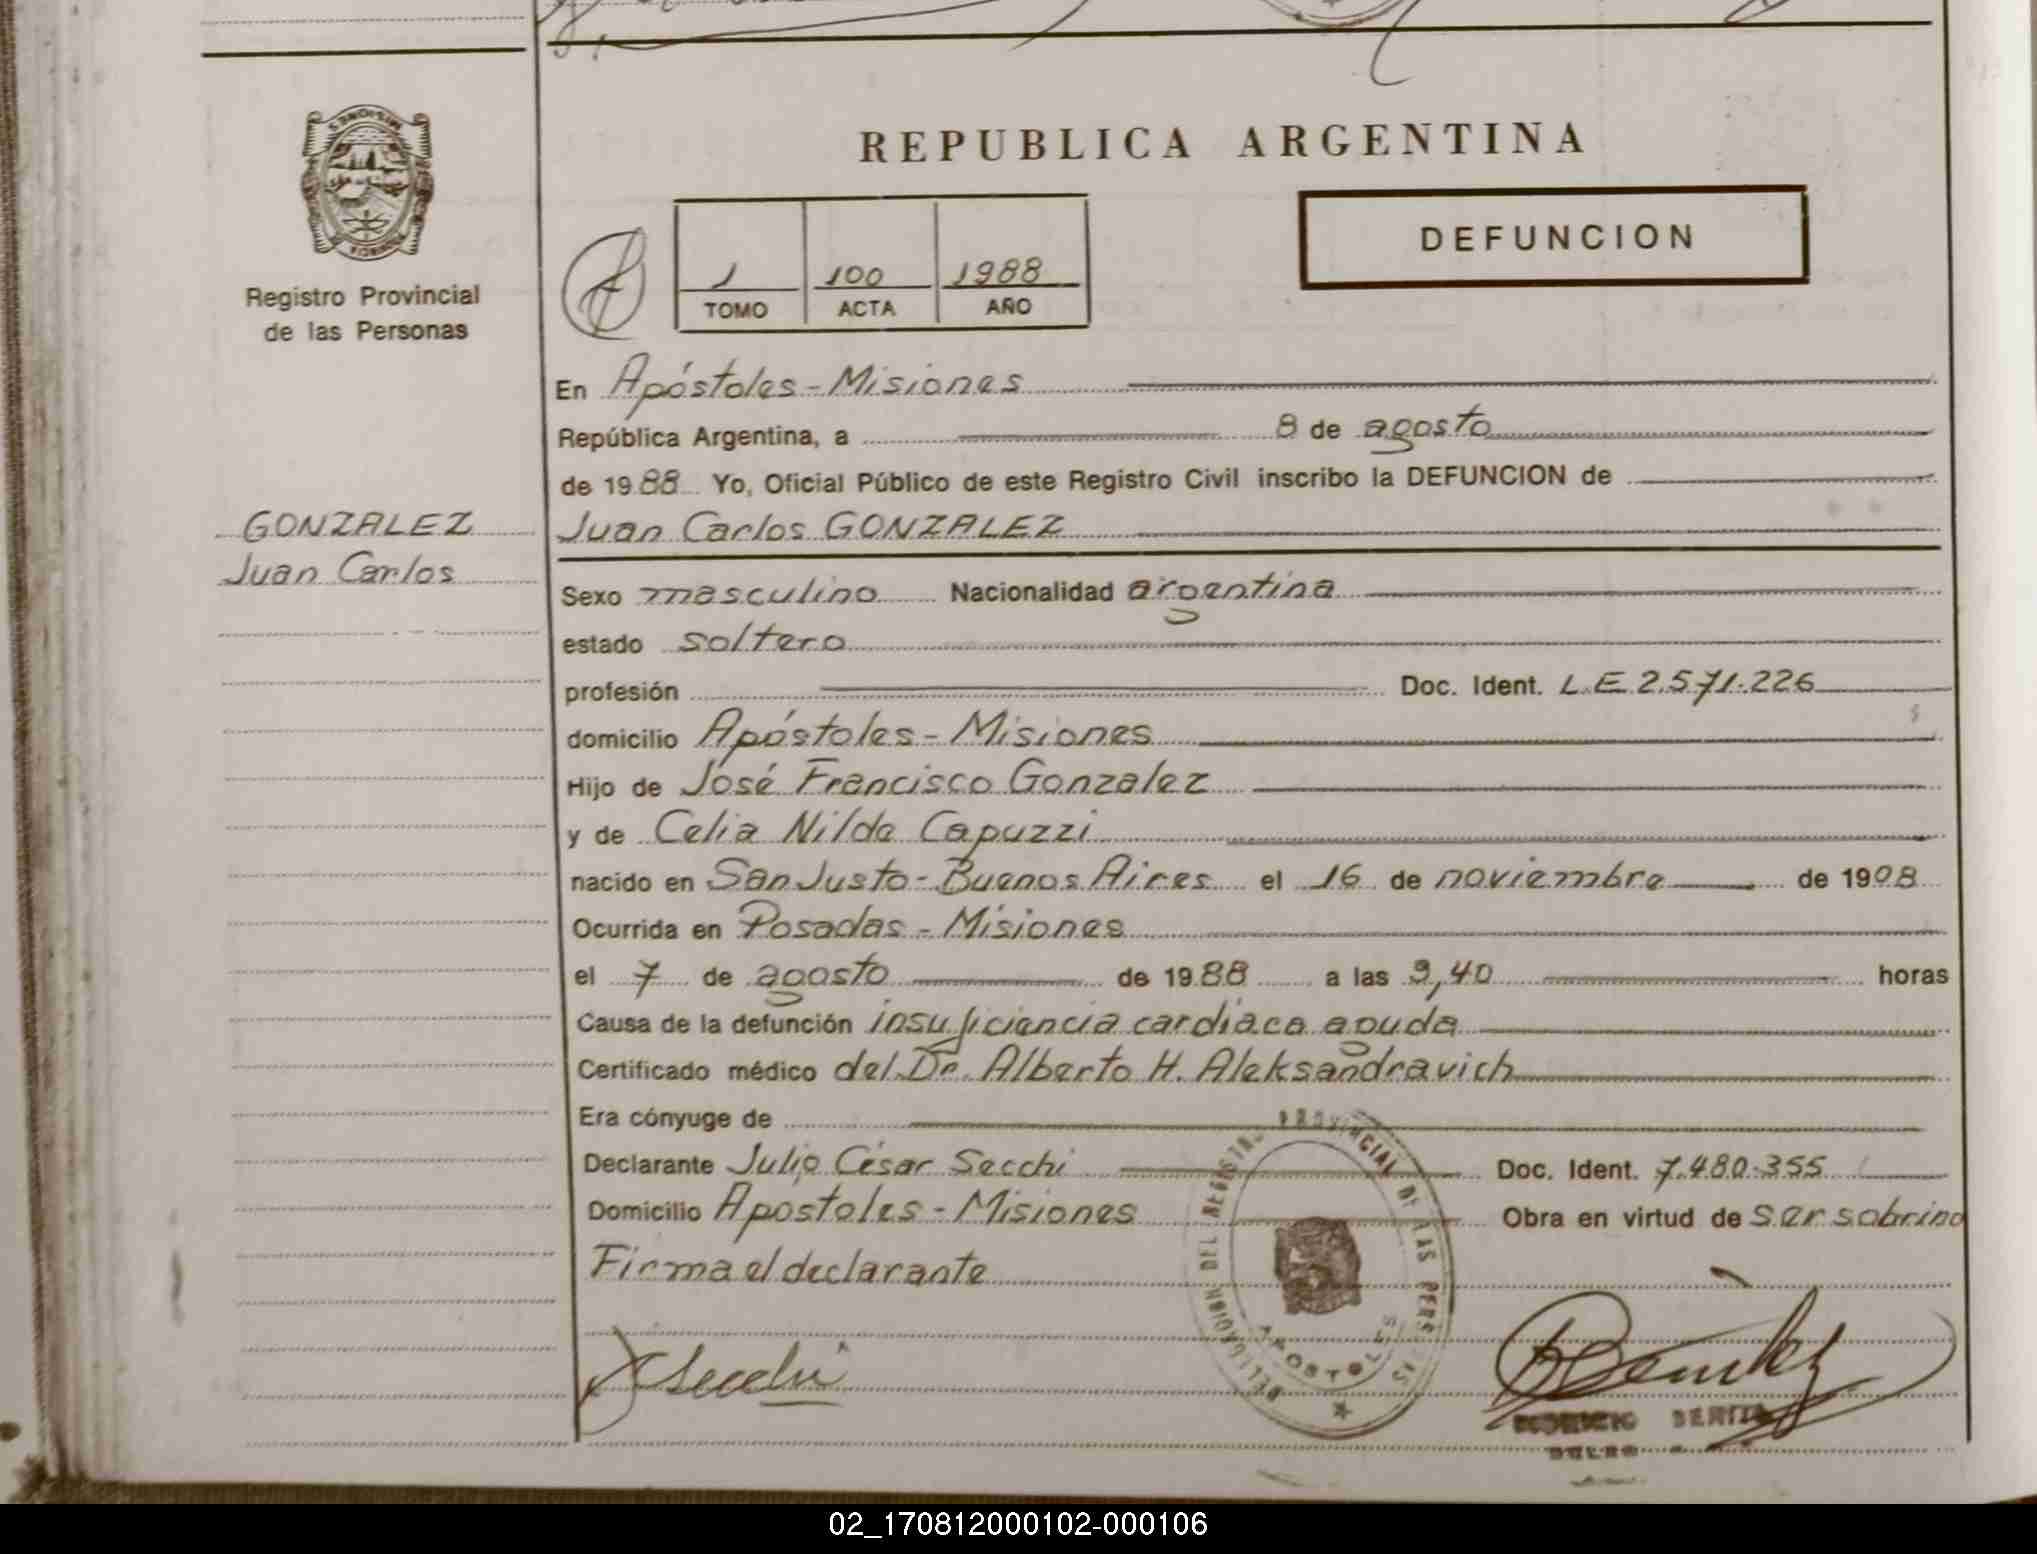 MISIONES
PROVINCIA
Registro Provincial
de las Personas
GONZALEZ
Juan Carlos
REPUBLICA ARGENTINA
DEFUNCION
1 100 1988
TOMO ACTA AÑO
En Apóstoles - Misiones
República Argentina, a 8 de agosto
de 1988 Yo, Oficial Público de este Registro Civil inscribo la DEFUNCION de
Juan Carlos GONZALEZ
Sexo masculino Nacionalidad argentina
estado soltero
profesión Doc. Ident. L.E 2.571.226
domicilio Apóstoles - Misiones
Hijo de José Francisco Gonzalez
y de Celia Nilda Capuzzi
nacido en San Justo - Buenos Aires el 16 de noviembre de 1908
Ocurrida en Posadas - Misiones
el 7 de agosto de 1988 a las 9,40 horas
Causa de la defunción insuficiencia cardiaca aguda
Certificado médico del Dr. Alberto H. Aleksandravich
Era cónyuge de
Declarante Julio César Secchi Doc. Ident. 7.480.355
Domicilio Apostoles - Misiones Obra en virtud de ser sobrino
Firma el declarante
DELEGACION DEL REGISTRO PROVINCIAL DE LAS PERSONAS
APOSTOLES
Secchi
02_170812000102-000106